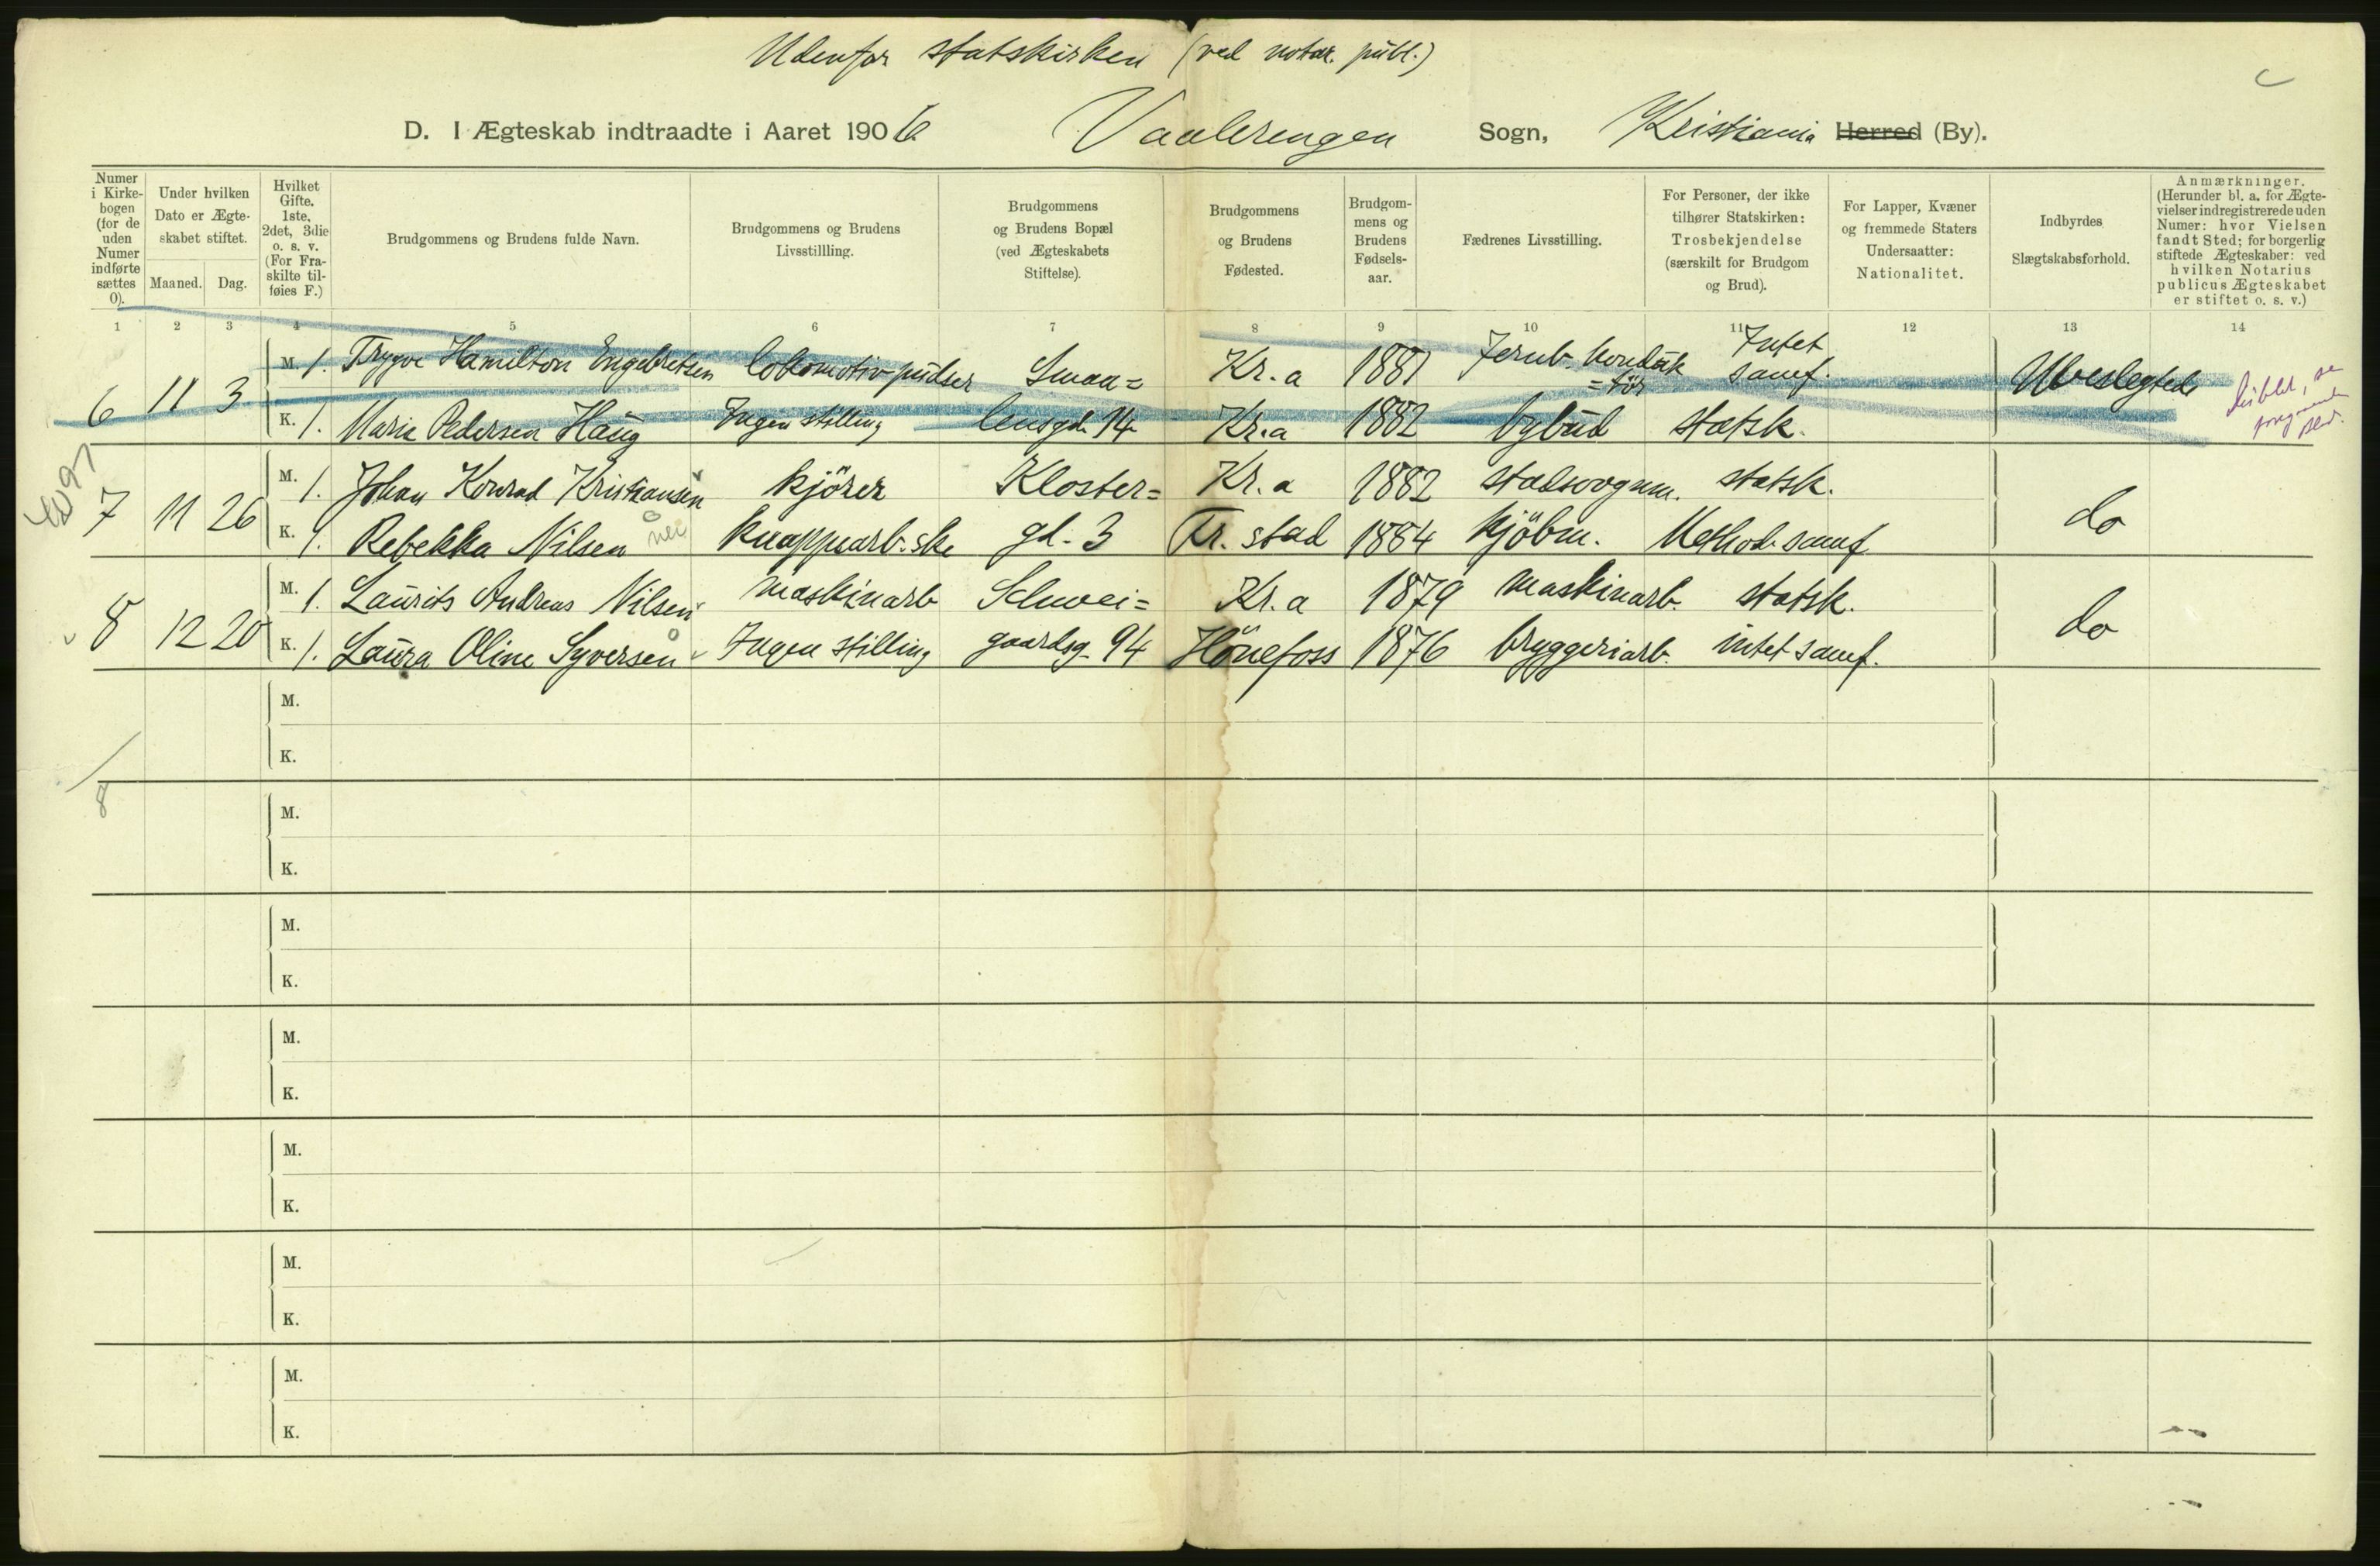 Udenfor statskirken (ved notar. publ.)
D. I Ægteskab indtraadte i Aaret 1906 Vaalerengen Sogn, Kristiania Herred (By).
Numer i Kirkebogen (for de uden Numer indførte sættes 0).
Under hvilken Dato er Ægteskabet stiftet.
Maaned. Dag.
Hvilket Gifte. 1ste, 2det, 3die o. s. v. (For Fraskilte tilføies F.)
Brudgommens og Brudens fulde Navn.
Brudgommens og Brudens Livsstillling.
Brudgommens og Brudens Bopæl (ved Ægteskabets Stiftelse).
Brudgommens og Brudens Fødested.
Brudgommens og Brudens Fødselsaar.
Fædrenes Livsstilling.
For Personer, der ikke tilhører Statskirken: Trosbekjendelse (særskilt for Brudgom og Brud).
For Lapper, Kvæner og fremmede Staters Undersaatter: Nationalitet.
Indbyrdes Slægtskabsforhold.
Anmærkninger. (Herunder bl. a. for Ægtevielser indregistrerede uden Numer: hvor Vielsen fandt Sted; for borgerlig stiftede Ægteskaber: ved hvilken Notarius publicus Ægteskabet er stiftet o. s. v.)
1 2 3 4 5 6 7 8 9 10 11 12 13 14
6 11 3 M. 1. Trygve Hamilton Engebretsen lokomotivpudser Smaa= Kr.a 1881 Jernb. konduk=tör Intet samf. Ubeslegtede
K. 1. Marie Pedersen Haug Ingen stilling lensgd. 14 Kr.a 1882 bybud statsk.
7 11 26 M. 1. Johan Konrad Kristiansen kjörer Kloster= Kr.a 1882 stadsvognm. statsk. do
K. 1. Rebekka Nilsen knappearb.ske gd. 3 Fr.stad 1884 kjöbm. Methodsamf
8 12 20 M. 1. Laurits Andreas Nilsen maskinarb Schwei= Kr.a 1879 maskinarb. statsk. do
K. 1. Laura Oline Syversen Ingen stilling gaardsg. 94 Hönefoss 1876 bryggeriarb. intet samf.
M.
K.
8
M.
K.
M.
K.
M.
K.
M.
K.
M.
K.
M.
K.